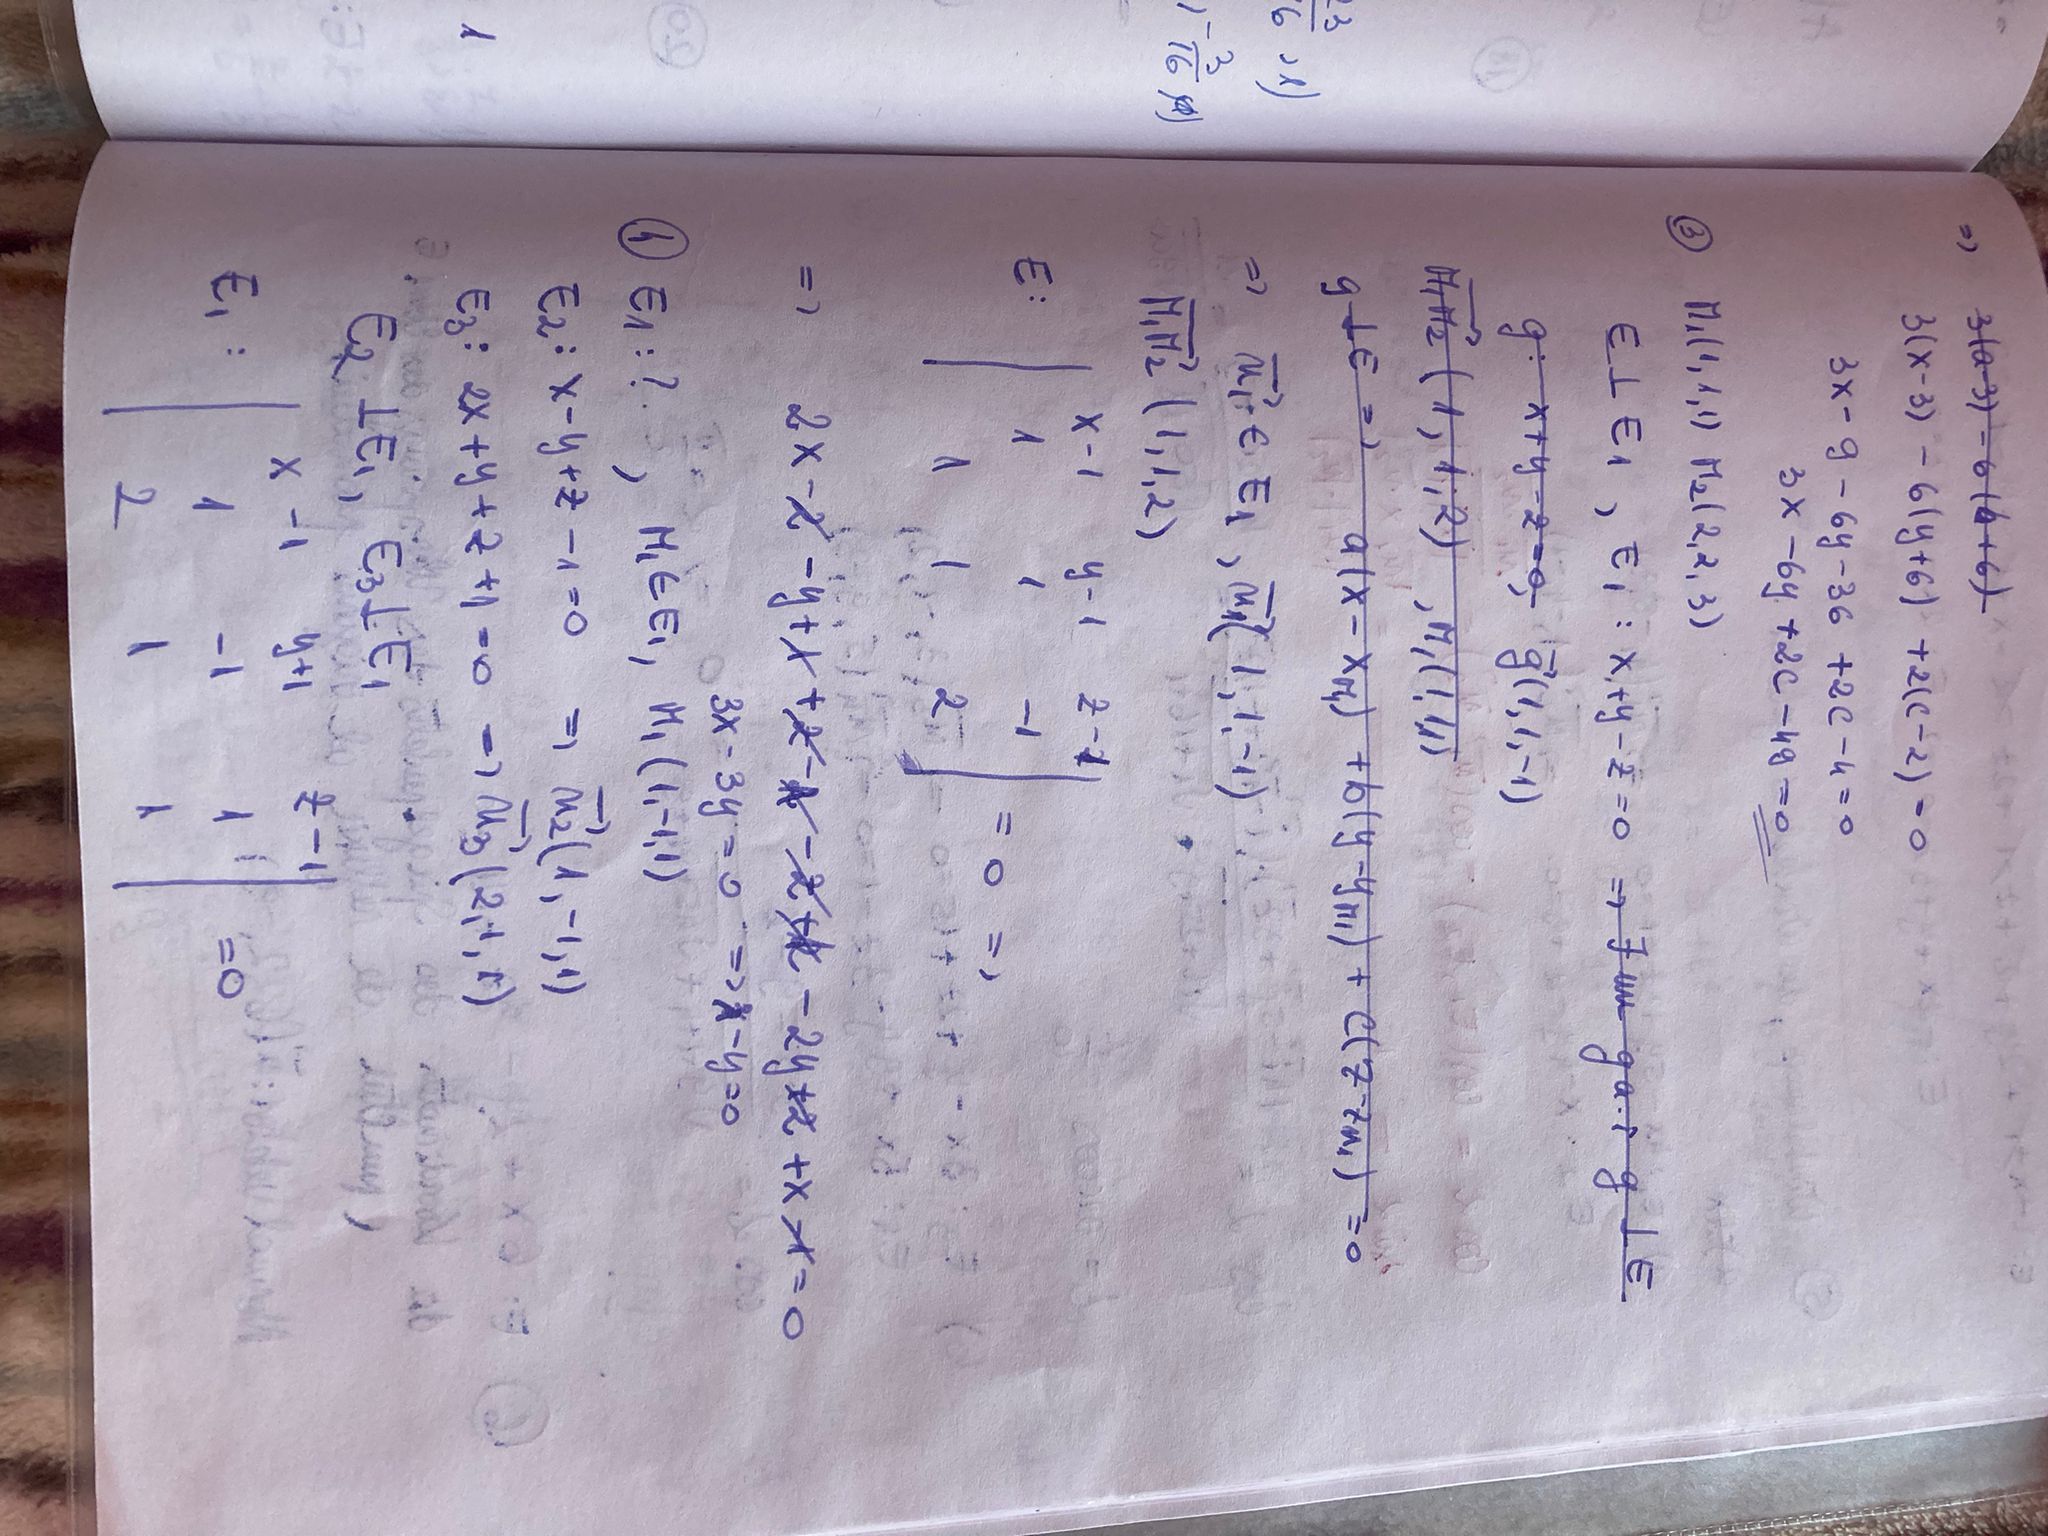 => 3(a-3) - 6(b+6)
3(x-3) - 6(y+6) +2(c-2) = 0
3x - 9 - 6y - 36 +2c - 4 = 0
3x - 6y + 2c - 49 = 0
③ M1(1,1,1) M2(2,2,3)
E ⊥ E1 , E1 : x+y-z=0 => ∃ un g a.î g ⊥ E
g: x+y-z=0, g⃗(1,1,-1)
M1M2 (1,1,2) , M1(1,1,1)
g ⊥ E => a(x-xM1) + b(y-yM1) + c(z-zM1) = 0
=> n1 ∈ E1 , n1(1,1,-1)
M1M2 (1,1,2)
x-1 y-1 z-1
E: 1 1 -1 = 0 =>
1 1 2
=> 2x-2-y+1+z-1-z+1-2y+2+x-1=0
3x-3y=0 => x-y=0
④ E1:? , M1 ∈ E1, M1(1,-1,1)
E2: x-y+z-1=0 => n2(1,-1,1)
E3: 2x+y+z+1=0 => n3(2,1,1)
E2 ⊥ E1, E3 ⊥ E1
x-1 y+1 z-1
E1: 1 -1 1 =0
2 1 1
23
16 ,1)
,-3
16
1